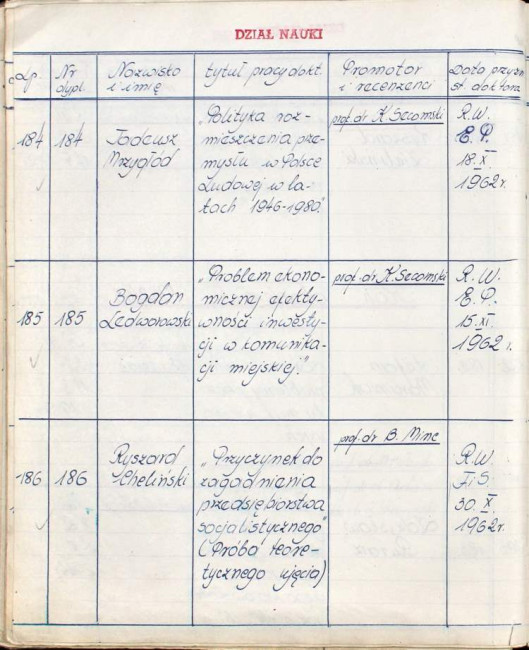 DZIAŁ NAUKI
Lp. Nr dypl. Nazwisko i imię tytuł pracy dokt. Promotor i recenzenci Data przyzn. st. doktora
184 184 Tadeusz Mrzygłód
„Polityka roz-
mieszczenia prze-
mysłu w Polsce
Ludowej w la-
tach 1946-1980."
prof. dr K. Secomski
R.W.
E.P.
18.X.
1962r.
185 185 Bogdan Ledworowski
„Problem ekono-
micznej efekty-
wności inwesty-
cji w komunika-
cji miejskiej."
prof. dr K. Secomski
R.W.
E.P.
15.XI.
1962r.
186 186 Ryszard Cheliński
„Przyczynek do
zagadnienia
przedsiębiorstwa
socjalistycznego"
(Próba teore-
tycznego ujęcia)
prof. dr B. Minc
R.W.
F.i S.
30.X.
1962r.